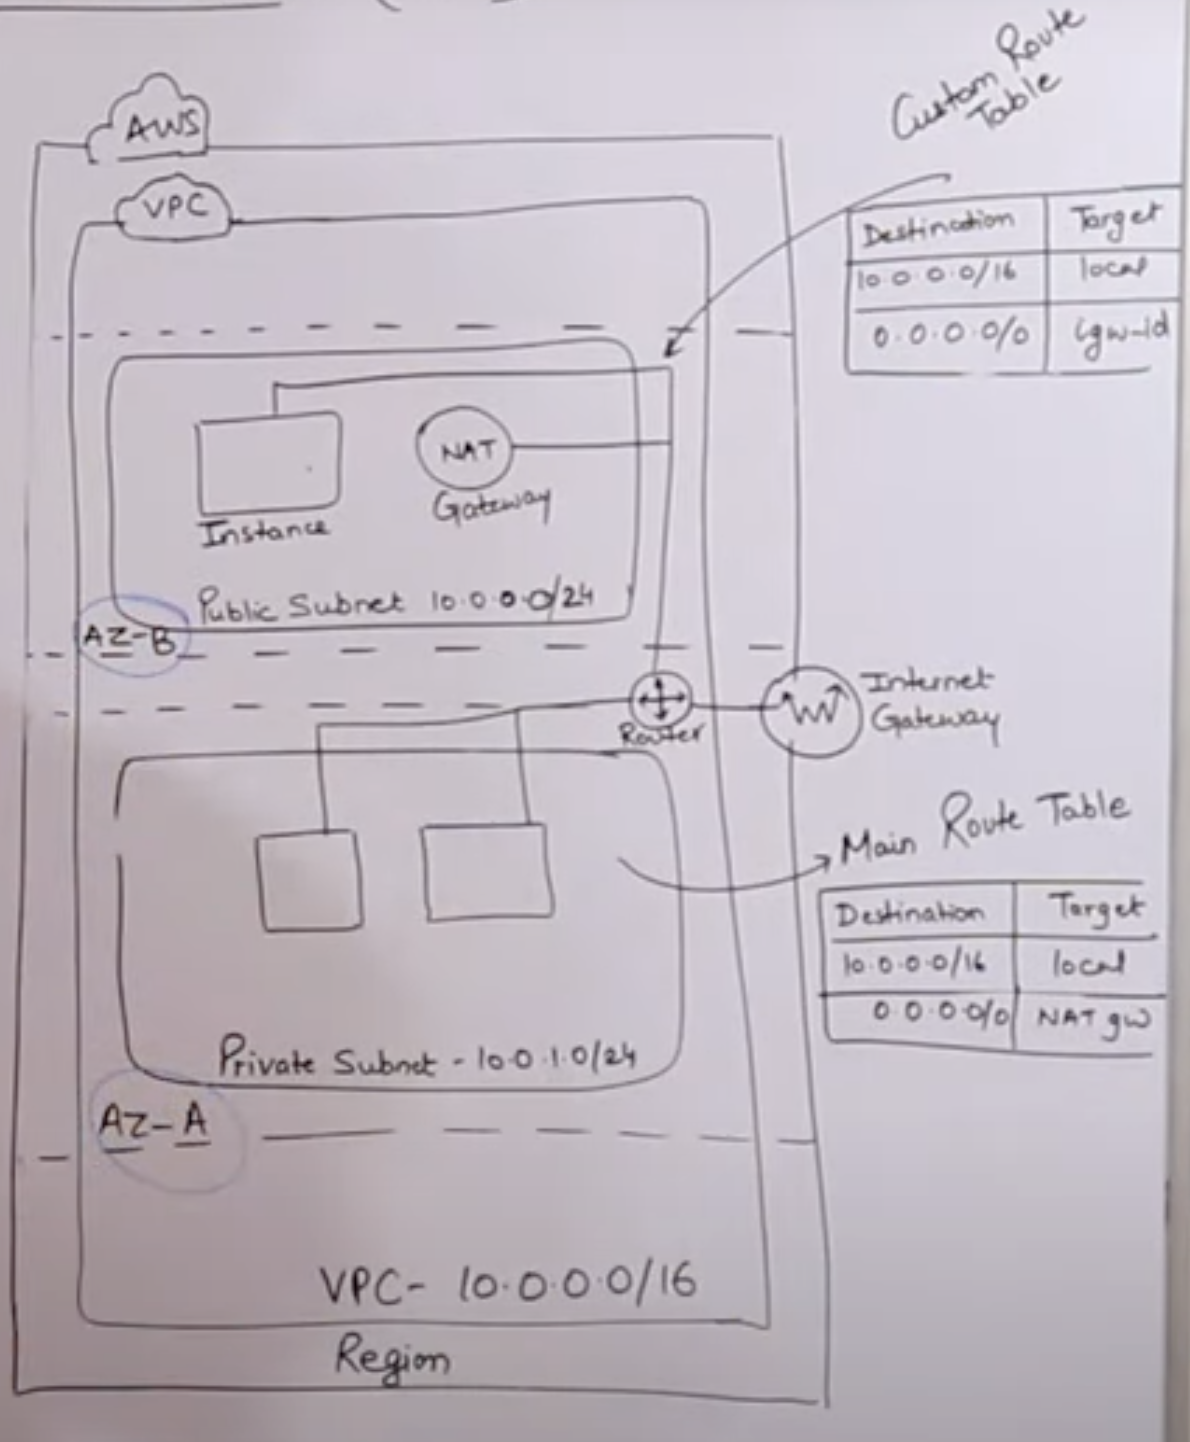 AWS
VPC
Custom Route
Table
Destination Target
10.0.0.0/16 local
0.0.0.0/0 igw-id
NAT
Gateway
Instance
Public Subnet 10.0.0.0/24
AZ-B
Router
Internet
Gateway
Main Route Table
Destination Target
10.0.0.0/16 local
0.0.0.0/0 NAT gw
Private Subnet - 10.0.1.0/24
AZ-A
VPC- 10.0.0.0/16
Region